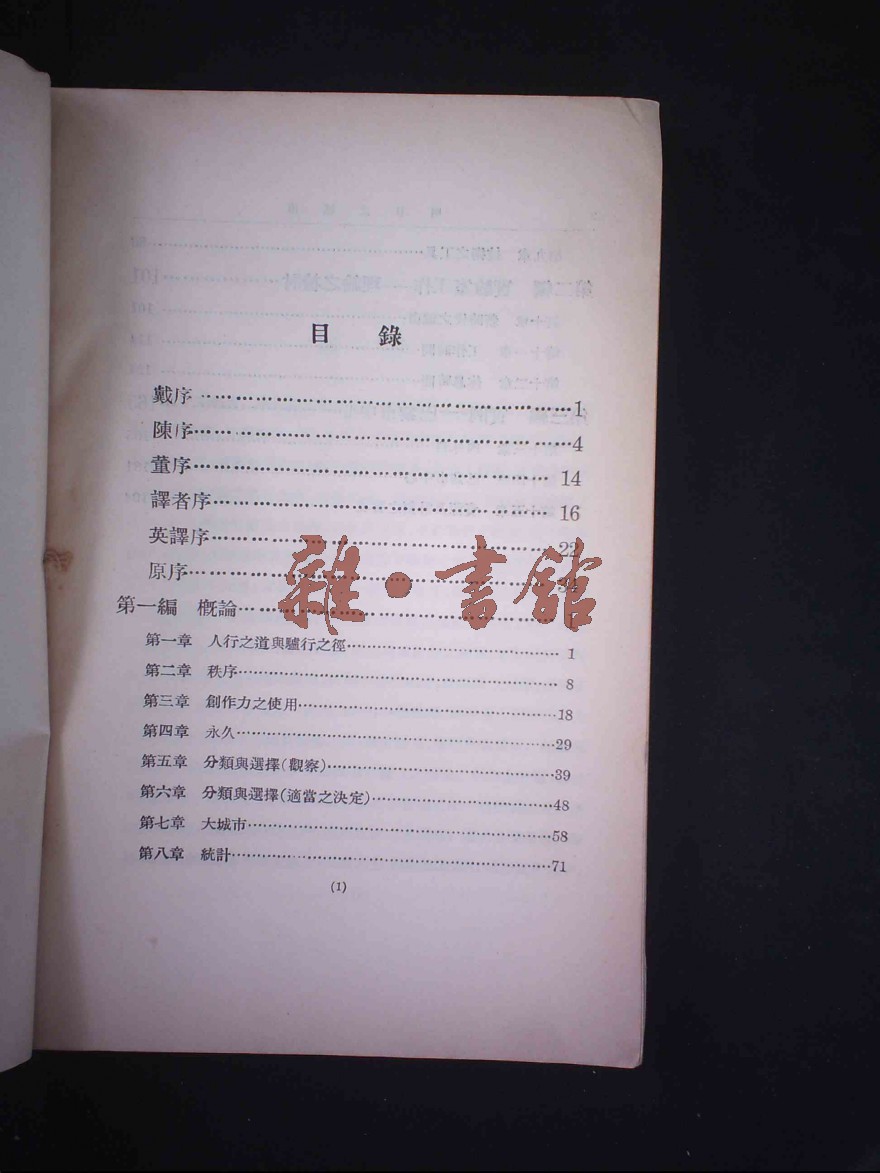 目 錄
戴序……………………………………………1
陳序……………………………………………4
董序……………………………………………14
譯者序…………………………………………16
英譯序…………………………………………22
原序……………………………………………
第一編 概論…………………………………
第一章 人行之道與驢行之徑………………1
第二章 秩序…………………………………8
第三章 創作力之使用………………………18
第四章 永久…………………………………29
第五章 分類與選擇(觀察)…………………39
第六章 分類與選擇(適當之決定)…………48
第七章 大城市………………………………58
第八章 統計…………………………………71
(1)
雜·書館